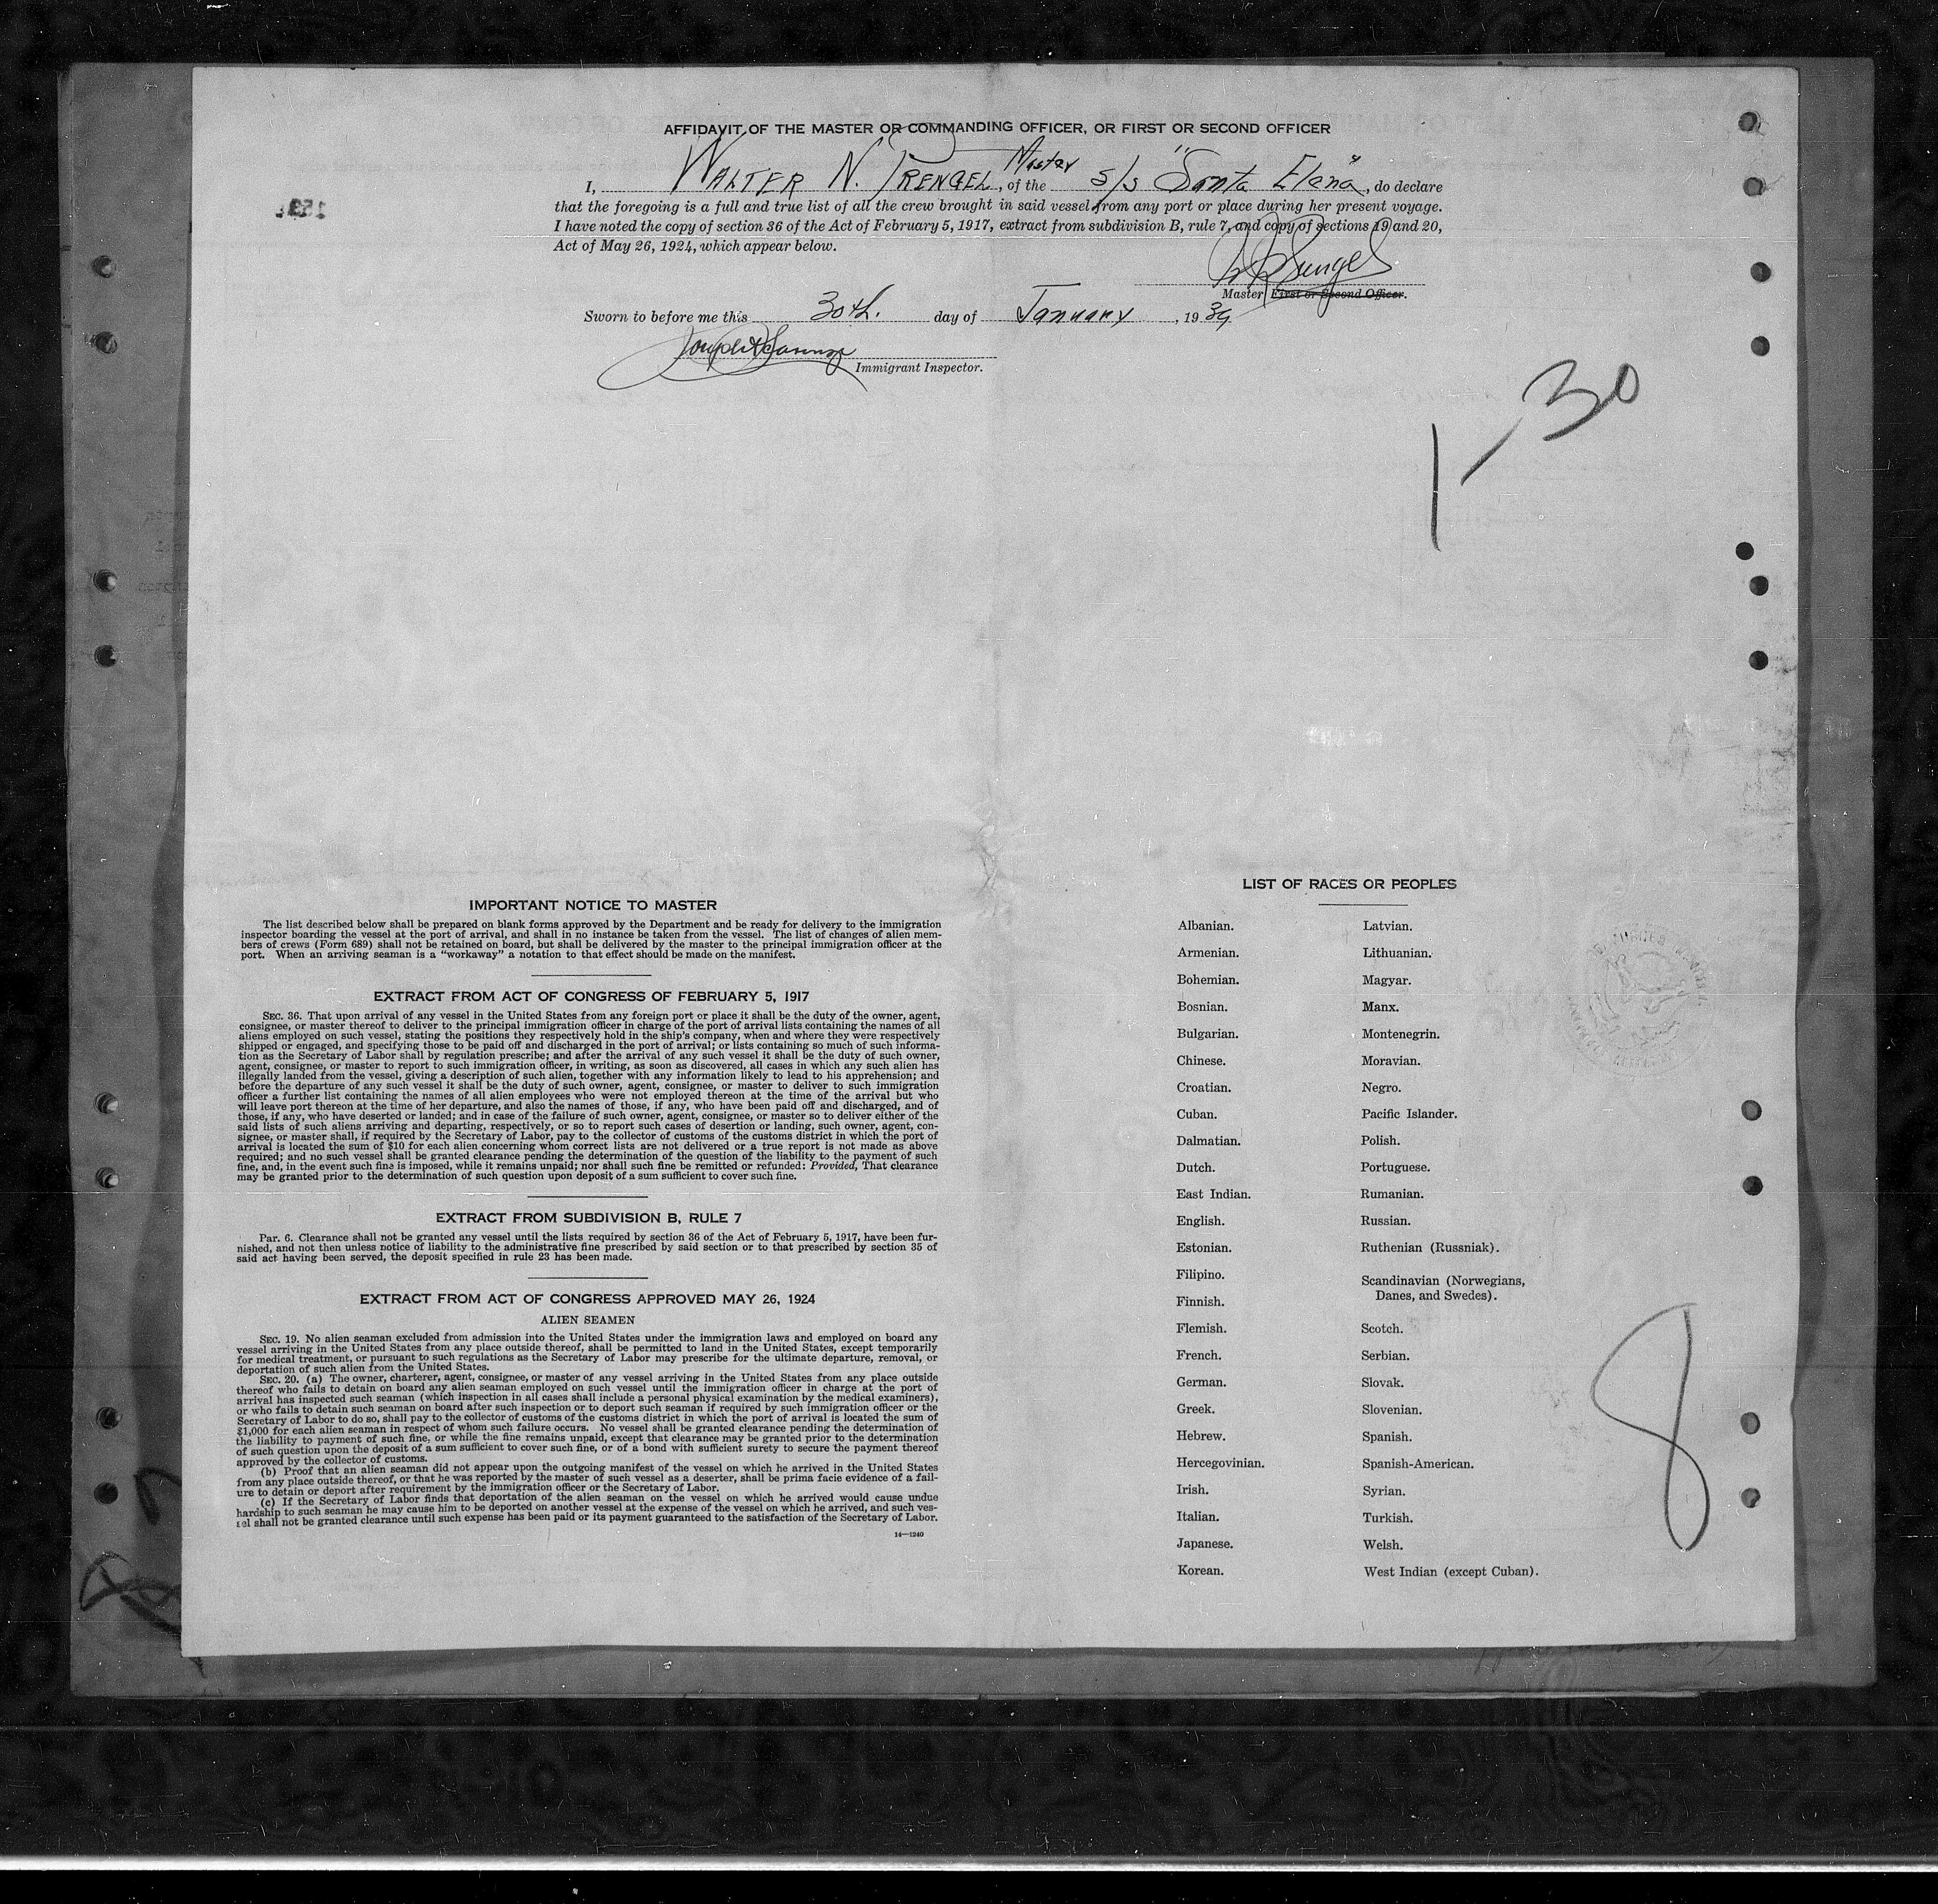 AFFIDAVIT OF THE MASTER OR COMMANDING OFFICER, OR FIRST OR SECOND OFFICER
I, WALTER N. PRENGEL, Master, of the S/S "Santa Elena", do declare
that the foregoing is a full and true list of all the crew brought in said vessel from any port or place during her present voyage.
I have noted the copy of section 36 of the Act of February 5, 1917, extract from subdivision B, rule 7, and copy of sections 19 and 20,
Act of May 26, 1924, which appear below.
Master First or Second Officer.
Sworn to before me this 30th. day of January, 1939
Immigrant Inspector.
1-30
IMPORTANT NOTICE TO MASTER
The list described below shall be prepared on blank forms approved by the Department and be ready for delivery to the immigration
inspector boarding the vessel at the port of arrival, and shall in no instance be taken from the vessel. The list of changes of alien mem-
bers of crews (Form 689) shall not be retained on board, but shall be delivered by the master to the principal immigration officer at the
port. When an arriving seaman is a "workaway" a notation to that effect should be made on the manifest.
EXTRACT FROM ACT OF CONGRESS OF FEBRUARY 5, 1917
SEC. 36. That upon arrival of any vessel in the United States from any foreign port or place it shall be the duty of the owner, agent,
consignee, or master thereof to deliver to the principal immigration officer in charge of the port of arrival lists containing the names of all
aliens employed on such vessel, stating the positions they respectively hold in the ship's company, when and where they were respectively
shipped or engaged, and specifying those to be paid off and discharged in the port of arrival; or lists containing so much of such informa-
tion as the Secretary of Labor shall by regulation prescribe; and after the arrival of any such vessel it shall be the duty of such owner,
agent, consignee, or master to report to such immigration officer, in writing, as soon as discovered, all cases in which any such alien has
illegally landed from the vessel, giving a description of such alien, together with any information likely to lead to his apprehension; and
before the departure of any such vessel it shall be the duty of such owner, agent, consignee, or master to deliver to such immigration
officer a further list containing the names of all alien employees who were not employed thereon at the time of the arrival but who
will leave port thereon at the time of her departure, and also the names of those, if any, who have been paid off and discharged, and of
those, if any, who have deserted or landed; and in case of the failure of such owner, agent, consignee, or master so to deliver either of the
said lists of such aliens arriving and departing, respectively, or so to report such cases of desertion or landing, such owner, agent, con-
signee, or master shall, if required by the Secretary of Labor, pay to the collector of customs of the customs district in which the port of
arrival is located the sum of $10 for each alien concerning whom correct lists are not delivered or a true report is not made as above
required; and no such vessel shall be granted clearance pending the determination of the question of the liability to the payment of such
fine, and, in the event such fine is imposed, while it remains unpaid; nor shall such fine be remitted or refunded: Provided, That clearance
may be granted prior to the determination of such question upon deposit of a sum sufficient to cover such fine.
EXTRACT FROM SUBDIVISION B, RULE 7
Par. 6. Clearance shall not be granted any vessel until the lists required by section 36 of the Act of February 5, 1917, have been fur-
nished, and not then unless notice of liability to the administrative fine prescribed by said section or to that prescribed by section 35 of
said act having been served, the deposit specified in rule 23 has been made.
EXTRACT FROM ACT OF CONGRESS APPROVED MAY 26, 1924
ALIEN SEAMEN
SEC. 19. No alien seaman excluded from admission into the United States under the immigration laws and employed on board any
vessel arriving in the United States from any place outside thereof, shall be permitted to land in the United States, except temporarily
for medical treatment, or pursuant to such regulations as the Secretary of Labor may prescribe for the ultimate departure, removal, or
deportation of such alien from the United States.
SEC. 20. (a) The owner, charterer, agent, consignee, or master of any vessel arriving in the United States from any place outside
thereof who fails to detain on board any alien seaman employed on such vessel until the immigration officer in charge at the port of
arrival has inspected such seaman (which inspection in all cases shall include a personal physical examination by the medical examiners),
or who fails to detain such seaman on board after such inspection or to deport such seaman if required by such immigration officer or the
Secretary of Labor to do so, shall pay to the collector of customs of the customs district in which the port of arrival is located the sum of
$1,000 for each alien seaman in respect of whom such failure occurs. No vessel shall be granted clearance pending the determination of
the liability to payment of such fine, or while the fine remains unpaid, except that clearance may be granted prior to the determination
of such question upon the deposit of a sum sufficient to cover such fine, or of a bond with sufficient surety to secure the payment thereof
approved by the collector of customs.
(b) Proof that an alien seaman did not appear upon the outgoing manifest of the vessel on which he arrived in the United States
from any place outside thereof, or that he was reported by the master of such vessel as a deserter, shall be prima facie evidence of a fail-
ure to detain or deport after requirement by the immigration officer or the Secretary of Labor.
(c) If the Secretary of Labor finds that deportation of the alien seaman on the vessel on which he arrived would cause undue
hardship to such seaman he may cause him to be deported on another vessel at the expense of the vessel on which he arrived, and such ves-
sel shall not be granted clearance until such expense has been paid or its payment guaranteed to the satisfaction of the Secretary of Labor.
14—1240
LIST OF RACES OR PEOPLES
Albanian.
Armenian.
Bohemian.
Bosnian.
Bulgarian.
Chinese.
Croatian.
Cuban.
Dalmatian.
Dutch.
East Indian.
English.
Estonian.
Filipino.
Finnish.
Flemish.
French.
German.
Greek.
Hebrew.
Hercegovinian.
Irish.
Italian.
Japanese.
Korean.
Latvian.
Lithuanian.
Magyar.
Manx.
Montenegrin.
Moravian.
Negro.
Pacific Islander.
Polish.
Portuguese.
Rumanian.
Russian.
Ruthenian (Russniak).
Scandinavian (Norwegians,
Danes, and Swedes).
Scotch.
Serbian.
Slovak.
Slovenian.
Spanish.
Spanish-American.
Syrian.
Turkish.
Welsh.
West Indian (except Cuban).
8